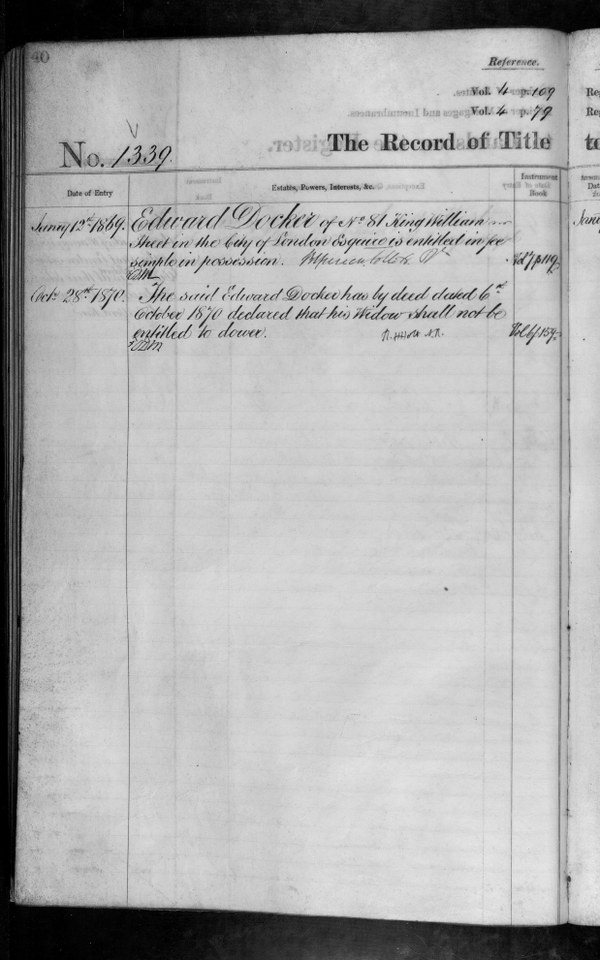 40
Reference.
Vol. 4 p. 109
Vol. 4 p. 79
The Record of Title
No. 1339.
Date of Entry
Estates, Powers, Interests, &c.
Instrument Book
Janry 12th 1869.
Edward Docker of No 81 King William
Street in the City of London Esquire is entitled in fee
simple in possession.
Vol 7 p 119
Octr 28th 1870.
The said Edward Docker has by deed dated 6th
October 1870 declared that his Widow shall not be
entitled to dower.